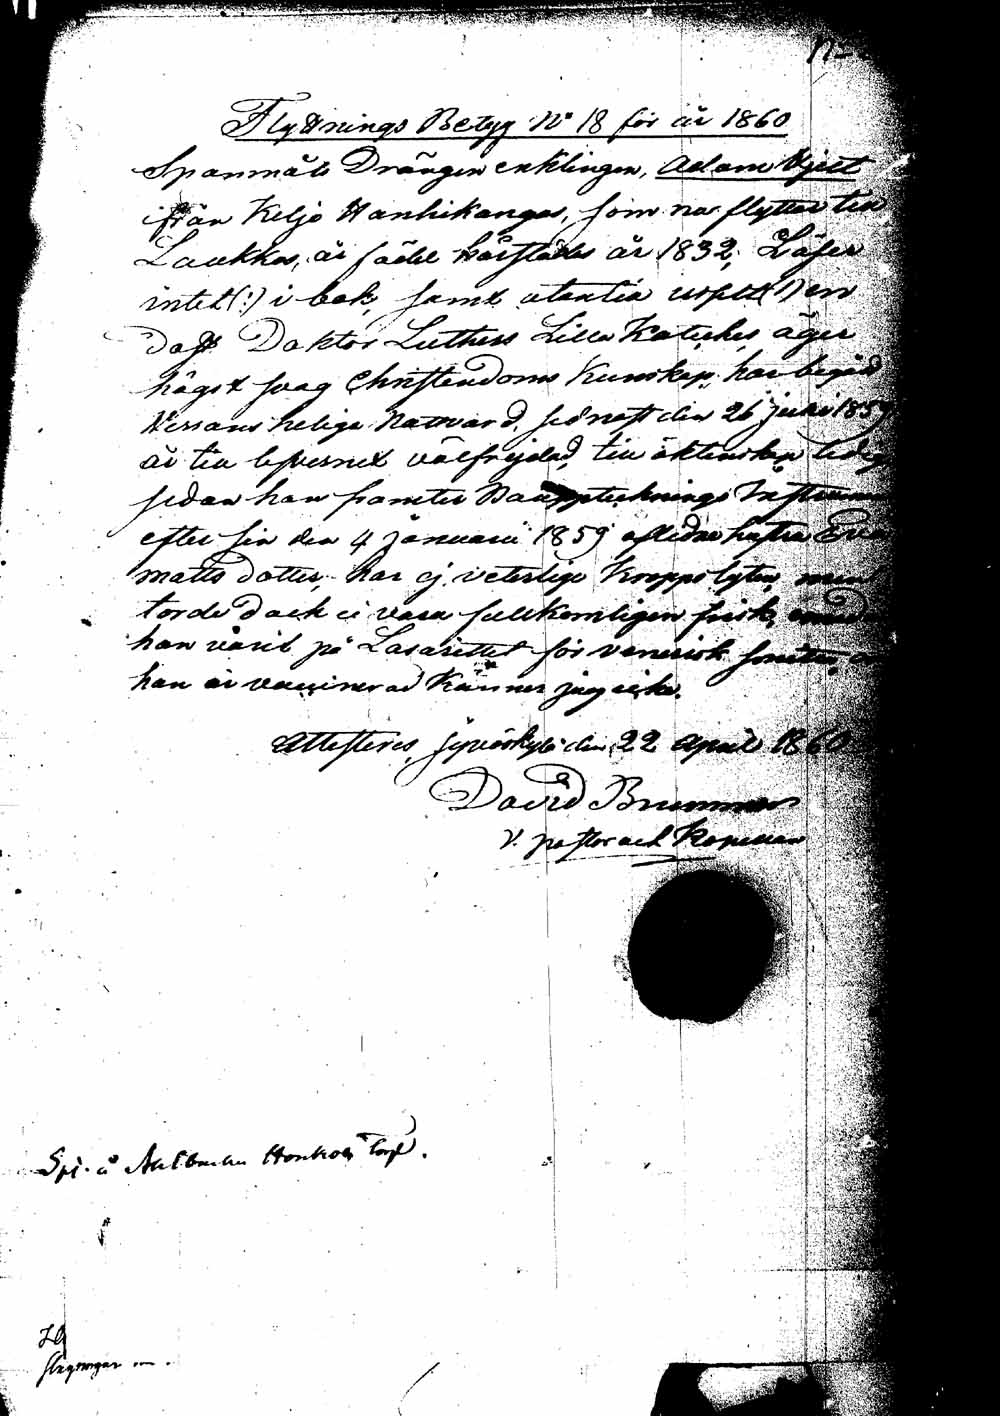 No
Flyttnings Betyg No 18 för år 1860
Spanmåls Drängen enklingen, Adam Hjelt
ifrån Keljo Hanhikangas, som nu flyttar till
Laukkas, är född härstädes år 1832; Läser
intet (:) i bok, samt utantill
Doktor Luthers Lilla Kateches, äger
högst svag Christendoms Kunskap, har begått
Herrans heliga Nattvard sednast den 26 Juni 1859
är till lefvernet välfrejdad, till äktenskap ledig
sedan han framter Bouppteknings Instrument
efter sin den 4 Januari 1859 aflidna hustru Eva
Matts dotter, har ej veterliga Kroppslyten, men
torde dock ei vara fullkomligen frisk, emedan
han varit på Lasarettet för venerisk smitta, om
han är vaccinerad känner jag icke.
Attesteras, Jyväskylä den 22 April 1860
David Brummer
v. pastor och Kapellan
Spl. å Honkola Torp.